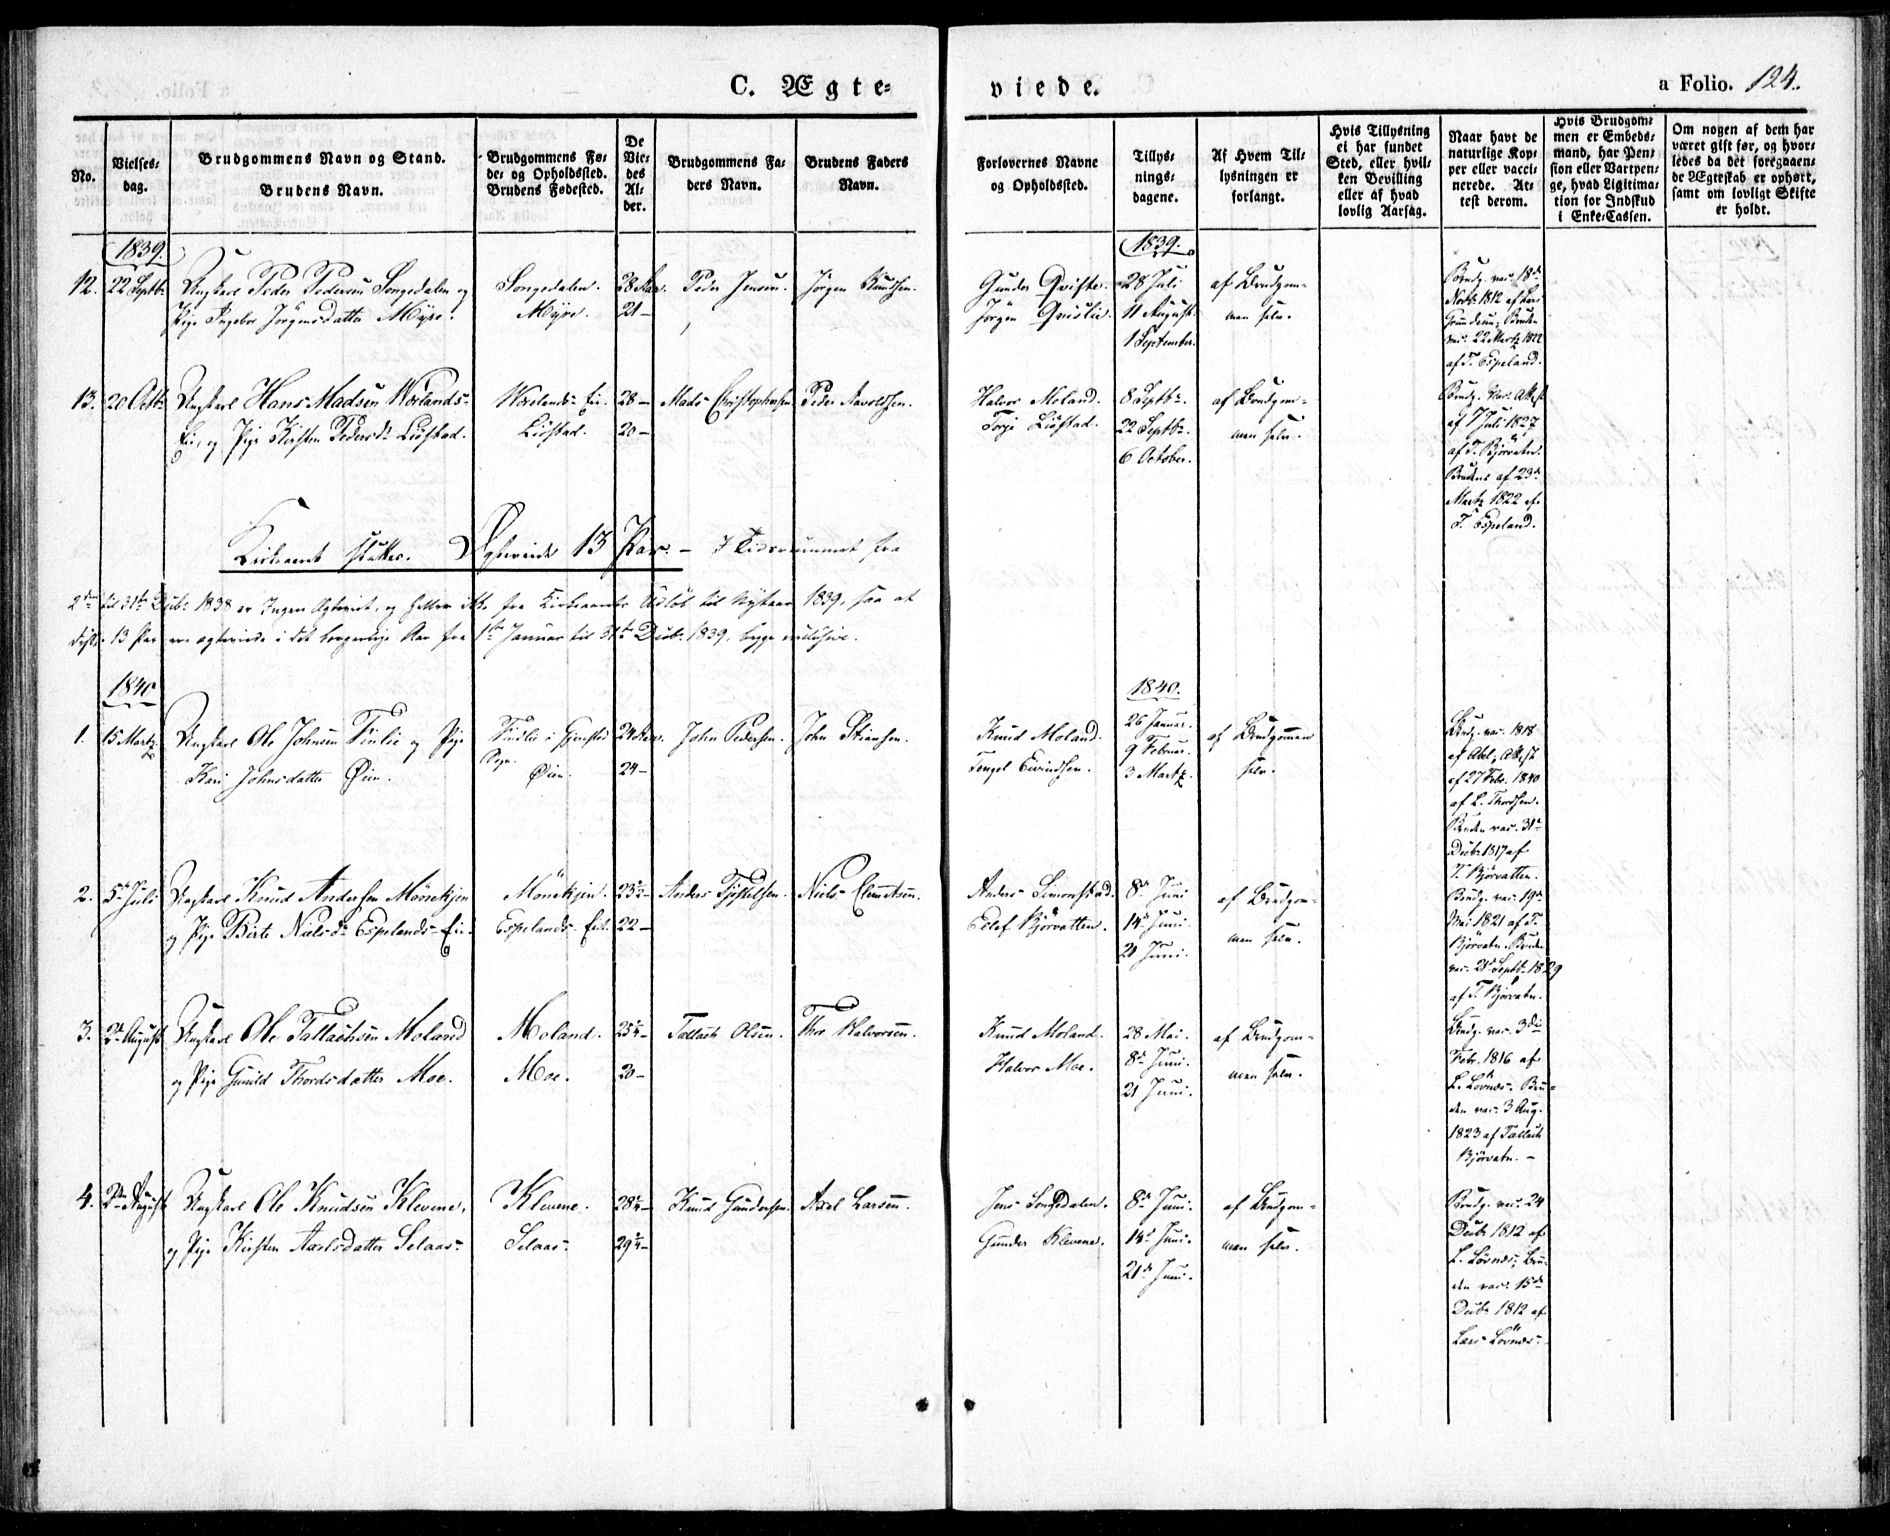 C. Ægte-
viede.
a Folio. 124.
No.
Vielses-
dag.
Brudgommens Navn og Stand.
Brudens Navn.
Brudgommens Fø-
de- og Opholdssted.
Brudens Fødested.
De
Vie-
des
Al-
der.
Brudgommens Fa-
ders Navn.
Brudens Faders
Navn.
Forlovernes Navne
og Opholdssted.
Tillys-
nings-
dagene.
Af Hvem Til-
lysningen er
forlangt.
Hvis Tillysning
ei har fundet
Sted, eller hvil-
ken Bevilling
eller af hvad
lovlig Aarsag.
Naar havt de
naturlige Kop-
per eller vacci-
nerede. At-
test derom.
Hvis Brudgom-
men er Embeds-
mand, har Pen-
sion eller Vartpen-
ge, hvad Ligitima-
tion for Indskud
i Enke-Cassen.
Om nogen af dem har
været gift før, og hvor-
ledes da det foregaaen-
de Ægteskab er ophørt,
samt om lovligt Skifte
er holdt.
1839.
1839.
12. 22 Septb. Ungkarl Peder Pedersen Songedalen og
Pige Ingebor Jörgensdatter Mÿre.
Songedalen.
Mÿre.
28 Aar.
21 –
Peder Jensen.
Jörgen Knudsen.
Gunder Qviste.
Jörgen Qvistie.
28 Juli
11 August.
1 September.
af Brudgom-
men selv.
Brudg. vac. 18de
Novb. 1812 af Lars
Grundesen; Bruden
vac. 22 Martz 1822
af T. Espeland.
13. 20 Octb. Ungkarl Hans Madsen Wærlands-
Ei, og Pige Kirsten Pedersdr. Liøstad.
Wærlands-Ei.
Liøstad.
28 –
20 –
Mads Christophersen
Peder Aavoldsen.
Halvor Moland.
Torje Liøstad.
8 Septb.
22 Septb.
6 October.
af Brudgom-
men selv.
Brudg. Vac. Attest
af 7 Juli 1827
af T. Björvatn.
Brudens af 23de
Martz 1822 af
T. Espeland.
Kirkeaaret slutter. Ægteviede 13 Par. – I Tidsrummet fra
2den til 31te Decb. 1838 er Ingen Ægteviet, og heller ikke fra Kirkeaarets Udløb til Nytaar 1839, saa at
disse 13 Par ere ægteviede i det borgerlige Aar fra 1ste Januar til 31te Decb. 1839, begge inclusive.
1840
1840.
1. 15 Martz. Ungkarl Ole Johnsen Finlie og Pige
Kari Johnsdatter Øien.
Findlie i Gjerestad
Sogn.
Øien.
24 Aar.
24 –
John Pedersen.
John Stiansen.
Knud Moland.
Tengel Eivindsen.
26 Januar.
9 Februar.
3 Martz.
af Brudgommen
selv.
Brudg. vac. 1818
af Abel, Attest
af 27 Febr. 1840
af L. Thordsen.
Bruden vac. 31te
Decb. 1817 af
T. Björvatten.
2. 5te Juli Ungkarl Knud Andersen Mönekjen
og Pige Birte Nielsdr. Espelands-Ei.
Mönekjen.
Espelands-Eie.
23½ –
22 –
Anders Tjøstelsen.
Niels Clemetsen.
Anders Simonstad.
Eelef Björvatten.
8de Juni
14de Juni.
21 Juni.
af Brudgom-
men selv.
Brudg. vac. 19de
Mai 1821 af T.
Björvatn. Bruden
vac. 21de Septb. 1829
af T. Björvatn.
3. 2de August Ungkarl Ole Tallachsen Moland
og Pige Gunild Thordsdatter Moe.
Moland.
Moe.
25¼ –
20 –
Tallach Olsen.
Thor Halvorsen.
Knud Moland.
Halvor Moe.
28 Mai.
8de Juni.
21 Juni.
af Brudgom-
men selv.
Brudg. vac. 3die
Febr. 1816 af
L. Lövnæs. Bru-
den vac. 3 Aug.
1823 af Tallach
Björvatn. –
4. 2den August Ungkarl Ole Knudsen Klevene,
og Pige Kirsten Axelsdatter Selaas.
Klevene.
Selaas.
28¼ –
29¼ –
Knud Gundersen.
Axel Larsen.
Jens Songedalen.
Gunder Klevene.
8de Juni.
14de Juni.
21de Juni.
af Brudgom-
men selv.
Brudg. vac. 24
Decb. 1812 af
L. Lövnæs; Bru-
den vac. 15de
Decb. 1812 af
Lars Lövnæs.